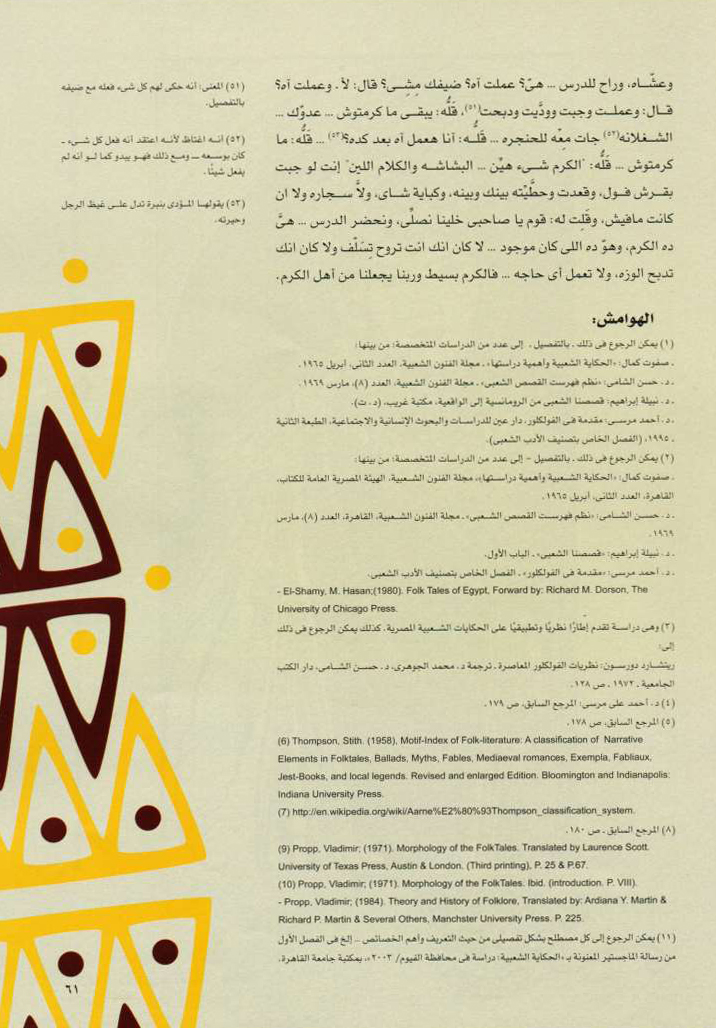 وعشّاه، وراح للدرس ... هىَّ؟ عملت آه؟ ضيفك مِشِى؟ قال: لأ. وعملت آه؟
قال: وعملت وجبت وودَّيت ودبحت(٥١)، قَلُّه: يبقى ما كرمتوش ... عدوّك ...
الشغلانه(٥٢) جات معّه للحنجره ... قَلُّه: أنا هعمل آه بعد كده؟(٥٣) ... قَلُّه: ما
كرمتوش ... قَلُّه: "الكرم شىء هيِّن ... البشاشه والكلام اللين" إنت لو جبت
بقرش فول، وقعدت وحطّيْته بينك وبينه، وكباية شاى، ولاَّ سجاره ولا ان
كانت مافيش، وقلت له: قوم يا صاحبى خلينا نصلِّى، ونحضر الدرس ... هىَّ
ده الكرم، وهوّ ده اللى كان موجود ... لا كان انك انت تروح تِسَلّف ولا كان انك
تدبح الوزه، ولا تعمل أى حاجه ... فالكرم بسيط وربنا يجعلنا من أهل الكرم.
(٥١) المعنى: أنه حكى لهم كل شىء فعله مع ضيفه
بالتفصيل.
(٥٢) أنه اغتاظ لأنه اعتقد أنه فعل كل شىء ـ
كان بوسعه ــ ومع ذلك فهو يبدو كما لو أنه لم
يفعل شيئًا.
(٥٣) يقولها المؤدى بنبرة تدل على غيظ الرجل
وحيرته.
الهوامش:
(١) يمكن الرجوع فى ذلك ـ بالتفصيل ـ إلى عدد من الدراسات المتخصصة؛ من بينها:
ـ صفوت كمال: «الحكاية الشعبية وأهمية دراستها» ـ مجلة الفنون الشعبية، العدد الثانى، أبريل ١٩٦٥.
ـ د. حسن الشامى: «نظم فهرست القصص الشعبى» ـ مجلة الفنون الشعبية، العدد (٨)، مارس ١٩٦٩.
ـ د. نبيلة إبراهيم: قصصنا الشعبى من الرومانسية إلى الواقعية، مكتبة غريب، (د. ت).
ـ د. أحمد مرسى: مقدمة فى الفولكلور، دار عين للدراسات والبحوث الإنسانية والاجتماعية، الطبعة الثانية
ـ ١٩٩٥، (الفصل الخاص بتصنيف الأدب الشعبى).
(٢) يمكن الرجوع فى ذلك ـ بالتفصيل - إلى عدد من الدراسات المتخصصة؛ من بينها:
ـ صفوت كمال: «الحكاية الشعبية وأهمية دراستها»، مجلة الفنون الشعبية، الهيئة المصرية العامة للكتاب،
القاهرة، العدد الثانى، أبريل ١٩٦٥.
ـ د. حسن الشامى: «نظم فهرست القصص الشعبى» ـ مجلة الفنون الشعبية، القاهرة، العدد (٨)، مارس
١٩٦٩.
ـ د. نبيلة إبراهيم: «قصصنا الشعبى» ـ الباب الأول.
ـ د. أحمد مرسى: «مقدمة فى الفولكلور» ـ الفصل الخاص بتصنيف الأدب الشعبى.
- El-Shamy, M. Hasan;(1980). Folk Tales of Egypt, Forward by: Richard M. Dorson, The
University of Chicago Press.
(٣) وهى دراسة تقدم إطارًا نظريًا وتطبيقيًا على الحكايات الشعبية المصرية. كذلك يمكن الرجوع فى ذلك
إلى:
ريتشارد دورسون: نظريات الفولكلور المعاصرة ـ ترجمة د. محمد الجوهرى، د. حسن الشامى، دار الكتب
الجامعية ـ ١٩٧٢ ـ ص ١٢٨.
(٤) د. أحمد على مرسى: المرجع السابق، ص ١٧٩.
(٥) المرجع السابق، ص ١٧٨.
(6) Thompson, Stith. (1958), Motif-Index of Folk-literature: A classification of Narrative
Elements in Folktales, Ballads, Myths, Fables, Mediaeval romances, Exempla, Fabliaux,
Jest-Books, and local legends. Revised and enlarged Edition. Bloomington and Indianapolis:
Indiana University Press.
(7) http://en.wikipedia.org/wiki/Aarne%E2%80%93Thompson_classification_system.
(٨) المرجع السابق ـ ص ١٨٠.
(9) Propp, Vladimir; (1971). Morphology of the FolkTales. Translated by Laurence Scott.
University of Texas Press, Austin & London. (Third printing), P. 25 & P.67.
(10) Propp, Vladimir; (1971). Morphology of the FolkTales. Ibid. (introduction. P. VIII).
- Propp, Vladimir; (1984). Theory and History of Folklore, Translated by: Ardiana Y. Martin &
Richard P. Martin & Several Others, Manchster University Press. P. 225.
(١١) يمكن الرجوع إلى كل مصطلح بشكل تفصيلى من حيث التعريف وأهم الخصائص ... إلخ فى الفصل الأول
من رسالة الماجستير المعنونة بـ «الحكاية الشعبية: دراسة فى محافظة الفيوم/ ٢٠٠٣»، بمكتبة جامعة القاهرة.
٦١